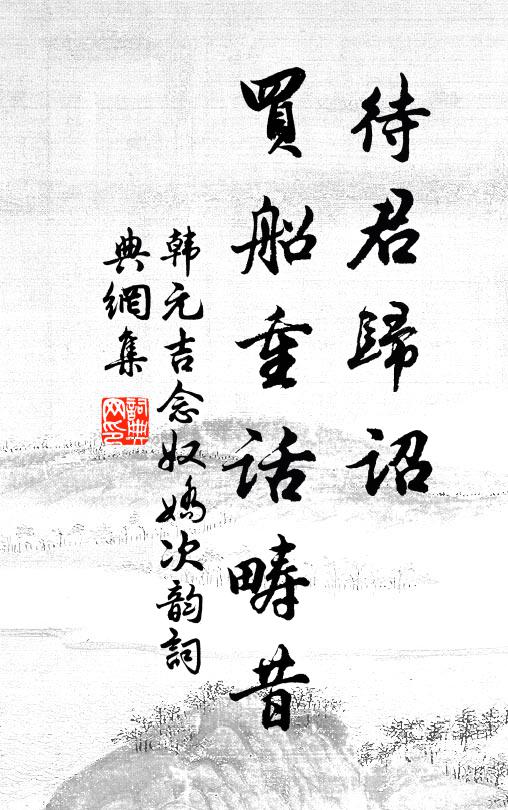 待君歸詔
買船重話疇昔
韩元吉念奴嬌次韵詞
典網集
詞典
网印